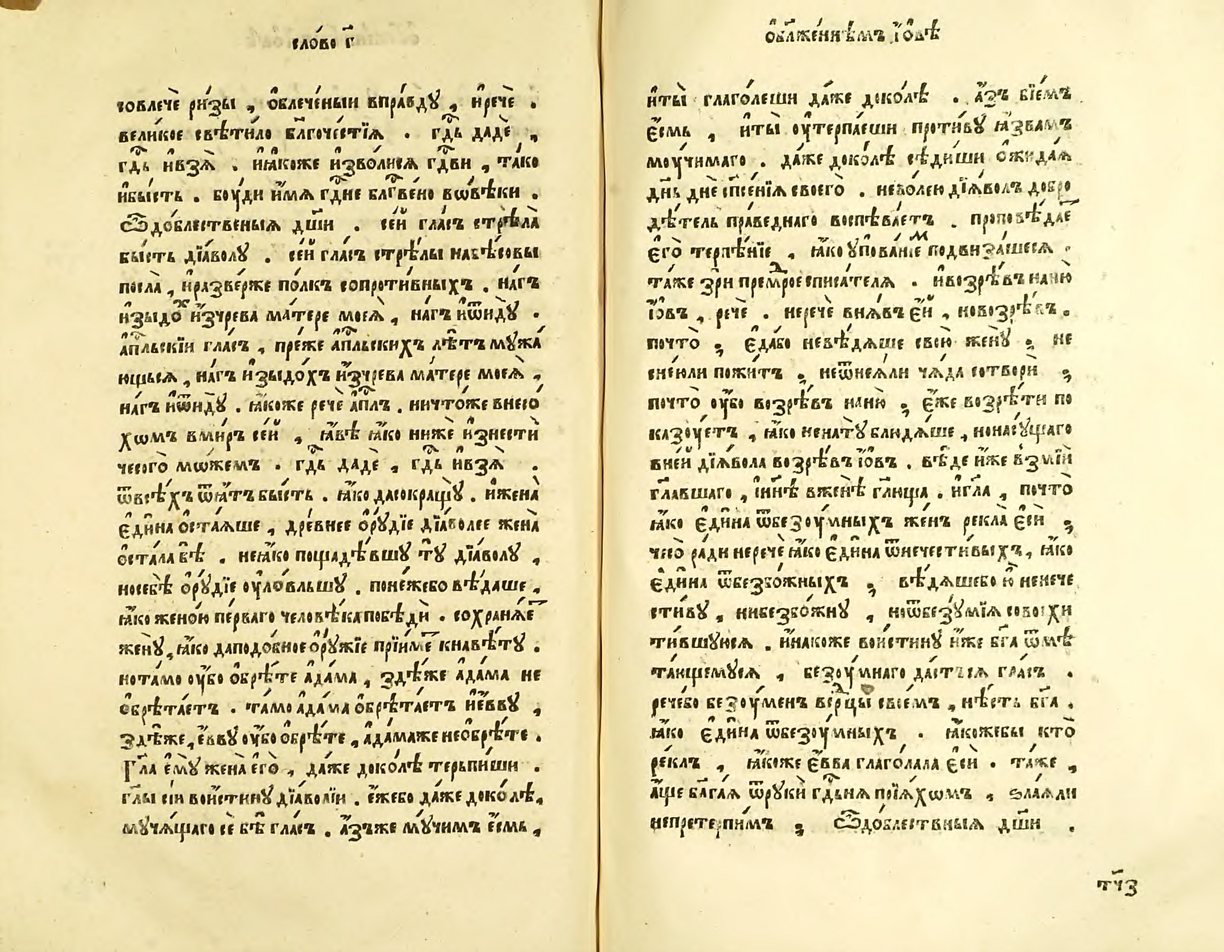 сло́во г҃
совлечѐ ри́зы , ѡ҆блече́ныи впра́вдꙋ , и҆речѐ .
вели́кое свѣти́ло бл҃гоче́стїѧ . гд҇ь дадѐ ,
гд҇ь и҆взѧ̀ . и҆ꙗ҆́коже и҆зво́лисѧ гд҇ви , та́ко
и҆бы́сть . бꙋ́ди и҆́мѧ гд҇не блг҇ве́но вѡвѣ́ки .
Ѽдо́блественыѧ дш҃и . се́й гла́съ стрѣла̀
бы́сть дїа́волꙋ . се́й гла́съ стрѣ́лы набѣ́совы
посла̀ , и҆разве́рже по́лкъ сопроти́вныхъ . на́гъ
и҆зыдо́х и҆зчре́ва ма́тере моеѧ̀ , на́гъ и҆ѿидꙋ̀ .
а҆пл҇ьскїи гла́съ , пре́же а҆пл҇ьскихъ лѣ́тъ мꙋ́жа
ющьсѧ , на́гъ и҆зыдо́хъ и҆зчре́ва ма́тере моеѧ̀ ,
на́гъ и҆ѿидꙋ̀ . ꙗ҆́коже речѐ а҆пл҇ъ . ничто́же внесо́
хѡмъ вми́ръ се́й , ꙗ҆́вѣ ꙗ҆́ко нижѐ и҆знестѝ
чесого̀ мо́жемъ . гд҇ь дадѐ , гд҇ь и҆взѧ̀ .
ѿвсѣ́хъ ѿѧ́тъ бы́сть . ꙗ҆́ко дасокращꙋ̀ . и҆жена̀
є҆ди́на ѡ҆ста́ѧше , дре́внее ѻ҆рꙋ́дїе дїа́волее жена̀
ѡ҆ста́ла бѣ̀ . неꙗ҆́ко пощадѣ́вшꙋ тꙋ̀ дїа́волꙋ ,
носебѣ̀ ѻ҆рꙋ́дїе оу҆ло́вльшꙋ . поне́жебо вѣ́даше ,
ꙗ҆́ко жено́ю пе́рваго человѣ́ка побѣдѝ . сохранѧ́е҆т
женꙋ̀ , ꙗ҆́ко даподо́бное ѻ҆рꙋ́жїе прїи́мет кнавѣ́тꙋ .
нота́мо оу҆́бо ѡ҆брѣ́те а҆да́ма , здѣ́же а҆да́ма не
ѡ҆брѣта́етъ . та́мо а҆да́ма ѡ҆брѣта́етъ и҆е҆́ввꙋ ,
здѣ́же , є҆́ввꙋ оу҆́бо ѡ҆брѣ́те , а҆да́маже неѡ҆брѣ́те .
Гл҃а є҆мꙋ̀ жена̀ е҆го̀ , да́же доко́лѣ терьпи́ши .
гл҃ы сїи вои́стинꙋ дїа́волїи . є҆́жебо да́же доко́лѣ ,
мꙋ́чѧщаго сѐ бѣ̀ гла́съ . а҆́зъже мꙋ́чимъ є҆́смь ,
ѡ҆бл҃же́ннѣмъ і҆́ѡвѣ
и҆ты̀ глаго́леши да́же доко́лѣ . а҆́зъ бїе́мъ
є҆́смь , и҆ты̀ оу҆терпа́еши проти́вꙋ ꙗ҆́звамъ
моу́чимаго . да́же доко́лѣ сѣди́ши ѡ҆жида́ѧ
дн҃ь днѐ сп҃се́нїѧ своего̀ . неволею дїа́волъ добро
дѣ́тель пра́веднаго воспѣва́етъ . проповѣ́дает
є҆го̀ терпѣ́нїе , ꙗ҆́ко упова́нїем подвиза́шесѧ .
та́же зрѝ премꙋ́дрое списа́телѧ . и҆возрѣ́въ наню̀
і҆́ѡвъ , речѐ . неречѐ внѧ́въ е҆́й , новозрѣ́въ .
почто̀ ; є҆да́бо невѣ́дѧше свою̀ женꙋ̀ ; не
сне́юли пожи́тъ ; неѿнеѧ́ли чѧ́да сотворѝ ;
почто̀ оу҆́бо возрѣ́въ наню̀ ; є҆́же возрѣ́ти по
ка́зꙋетъ , ꙗ҆́ко ненатꙋ̀ блюдѧ́ше , нонасꙋ́щаго
вне́й дїа́вола возрѣ́въ і҆́ѡвъ . вѣ́де и҆́же взмїѝ
гл҃авшаго , и҆ нн҃ѣ вженѣ̀ гл҃юща . и҆гл҃а , почто̀
ꙗ҆́ко є҆ди́на ѿбезꙋ́мныхъ же́нъ рекла̀ є҆сѝ ;
чесо̀ ради неречѐ ꙗ҆́ко є҆ди́на ѿнечести́выхъ , ꙗ҆́ко
є҆ди́на ѿбезбо́жныхъ ; вѣ́дѧшебо ю҆̀ ненече
сти́вꙋ , нибезбо́жнꙋ , ноѿбезꙋ́мїѧ совохи
ти́вшꙋюсѧ . и҆на́коже вои́стинꙋ и҆́же бг҃а ѿмѣ
та́ющемꙋсѧ , безꙋ́мнаго да́стъсѧ гла́съ .
рече́бо безꙋ́менъ ве́рдцы свое́мъ , нѣ́сть бг҃а .
ꙗ҆́ко є҆ди́на ѿбезꙋ́мныхъ . ꙗ҆́кожебы кто̀
ре́клъ , ꙗ҆́коже є҆́вва глаго́лала є҆сѝ . та́же ,
а҆́ще бага́ѧ ѿрꙋкѝ гд҇ьнѧ прїѧ́хѡмъ , ѕла́ѧли
непрете́рпимъ ; Ѽдо́блественыѧ дш҃и .
тч҃з